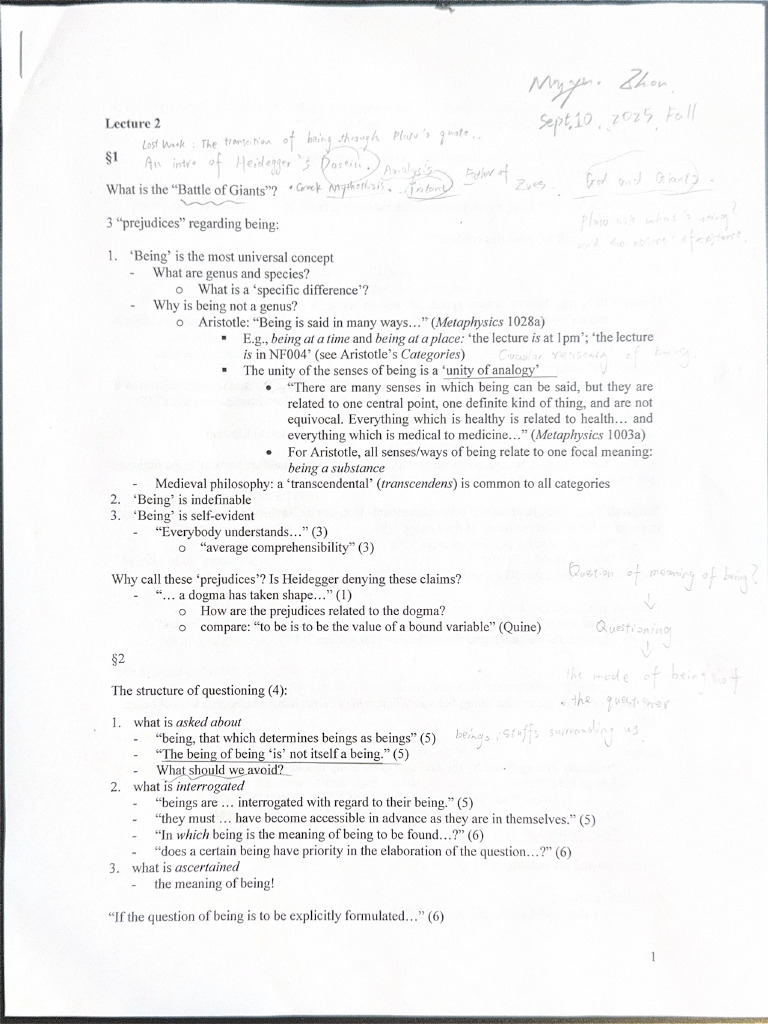 Zhou
Sept.10, 2025 Fall
Lecture 2
Last Week: The transition of being through Plato's quote..
§1
An intro of Heidegger's Dasein. Analysis
What is the “Battle of Giants”? • Greek Father of Zues. God and Giants.
3 “prejudices” regarding being:
1. ‘Being’ is the most universal concept
- What are genus and species?
o What is a ‘specific difference’?
- Why is being not a genus?
o Aristotle: “Being is said in many ways…” (Metaphysics 1028a)
▪ E.g., being at a time and being at a place: ‘the lecture is at 1pm’; ‘the lecture
is in NF004’ (see Aristotle’s Categories) of being.
▪ The unity of the senses of being is a ‘unity of analogy’
• “There are many senses in which being can be said, but they are
related to one central point, one definite kind of thing, and are not
equivocal. Everything which is healthy is related to health… and
everything which is medical to medicine…” (Metaphysics 1003a)
• For Aristotle, all senses/ways of being relate to one focal meaning:
being a substance
- Medieval philosophy: a ‘transcendental’ (transcendens) is common to all categories
2. ‘Being’ is indefinable
3. ‘Being’ is self-evident
- “Everybody understands…” (3)
o “average comprehensibility” (3)
Why call these ‘prejudices’? Is Heidegger denying these claims?
Question of meaning of being?
- “… a dogma has taken shape…” (1)
↓
o How are the prejudices related to the dogma?
o compare: “to be is to be the value of a bound variable” (Quine)
Questioning
↓
§2
the mode of being of
The structure of questioning (4):
the questioner
1. what is asked about
- “being, that which determines beings as beings” (5) beings: stuffs surrounding us.
- “The being of being ‘is’ not itself a being.” (5)
- What should we avoid?
2. what is interrogated
- “beings are … interrogated with regard to their being.” (5)
- “they must … have become accessible in advance as they are in themselves.” (5)
- “In which being is the meaning of being to be found…?” (6)
- “does a certain being have priority in the elaboration of the question…?” (6)
3. what is ascertained
- the meaning of being!
“If the question of being is to be explicitly formulated…” (6)
1